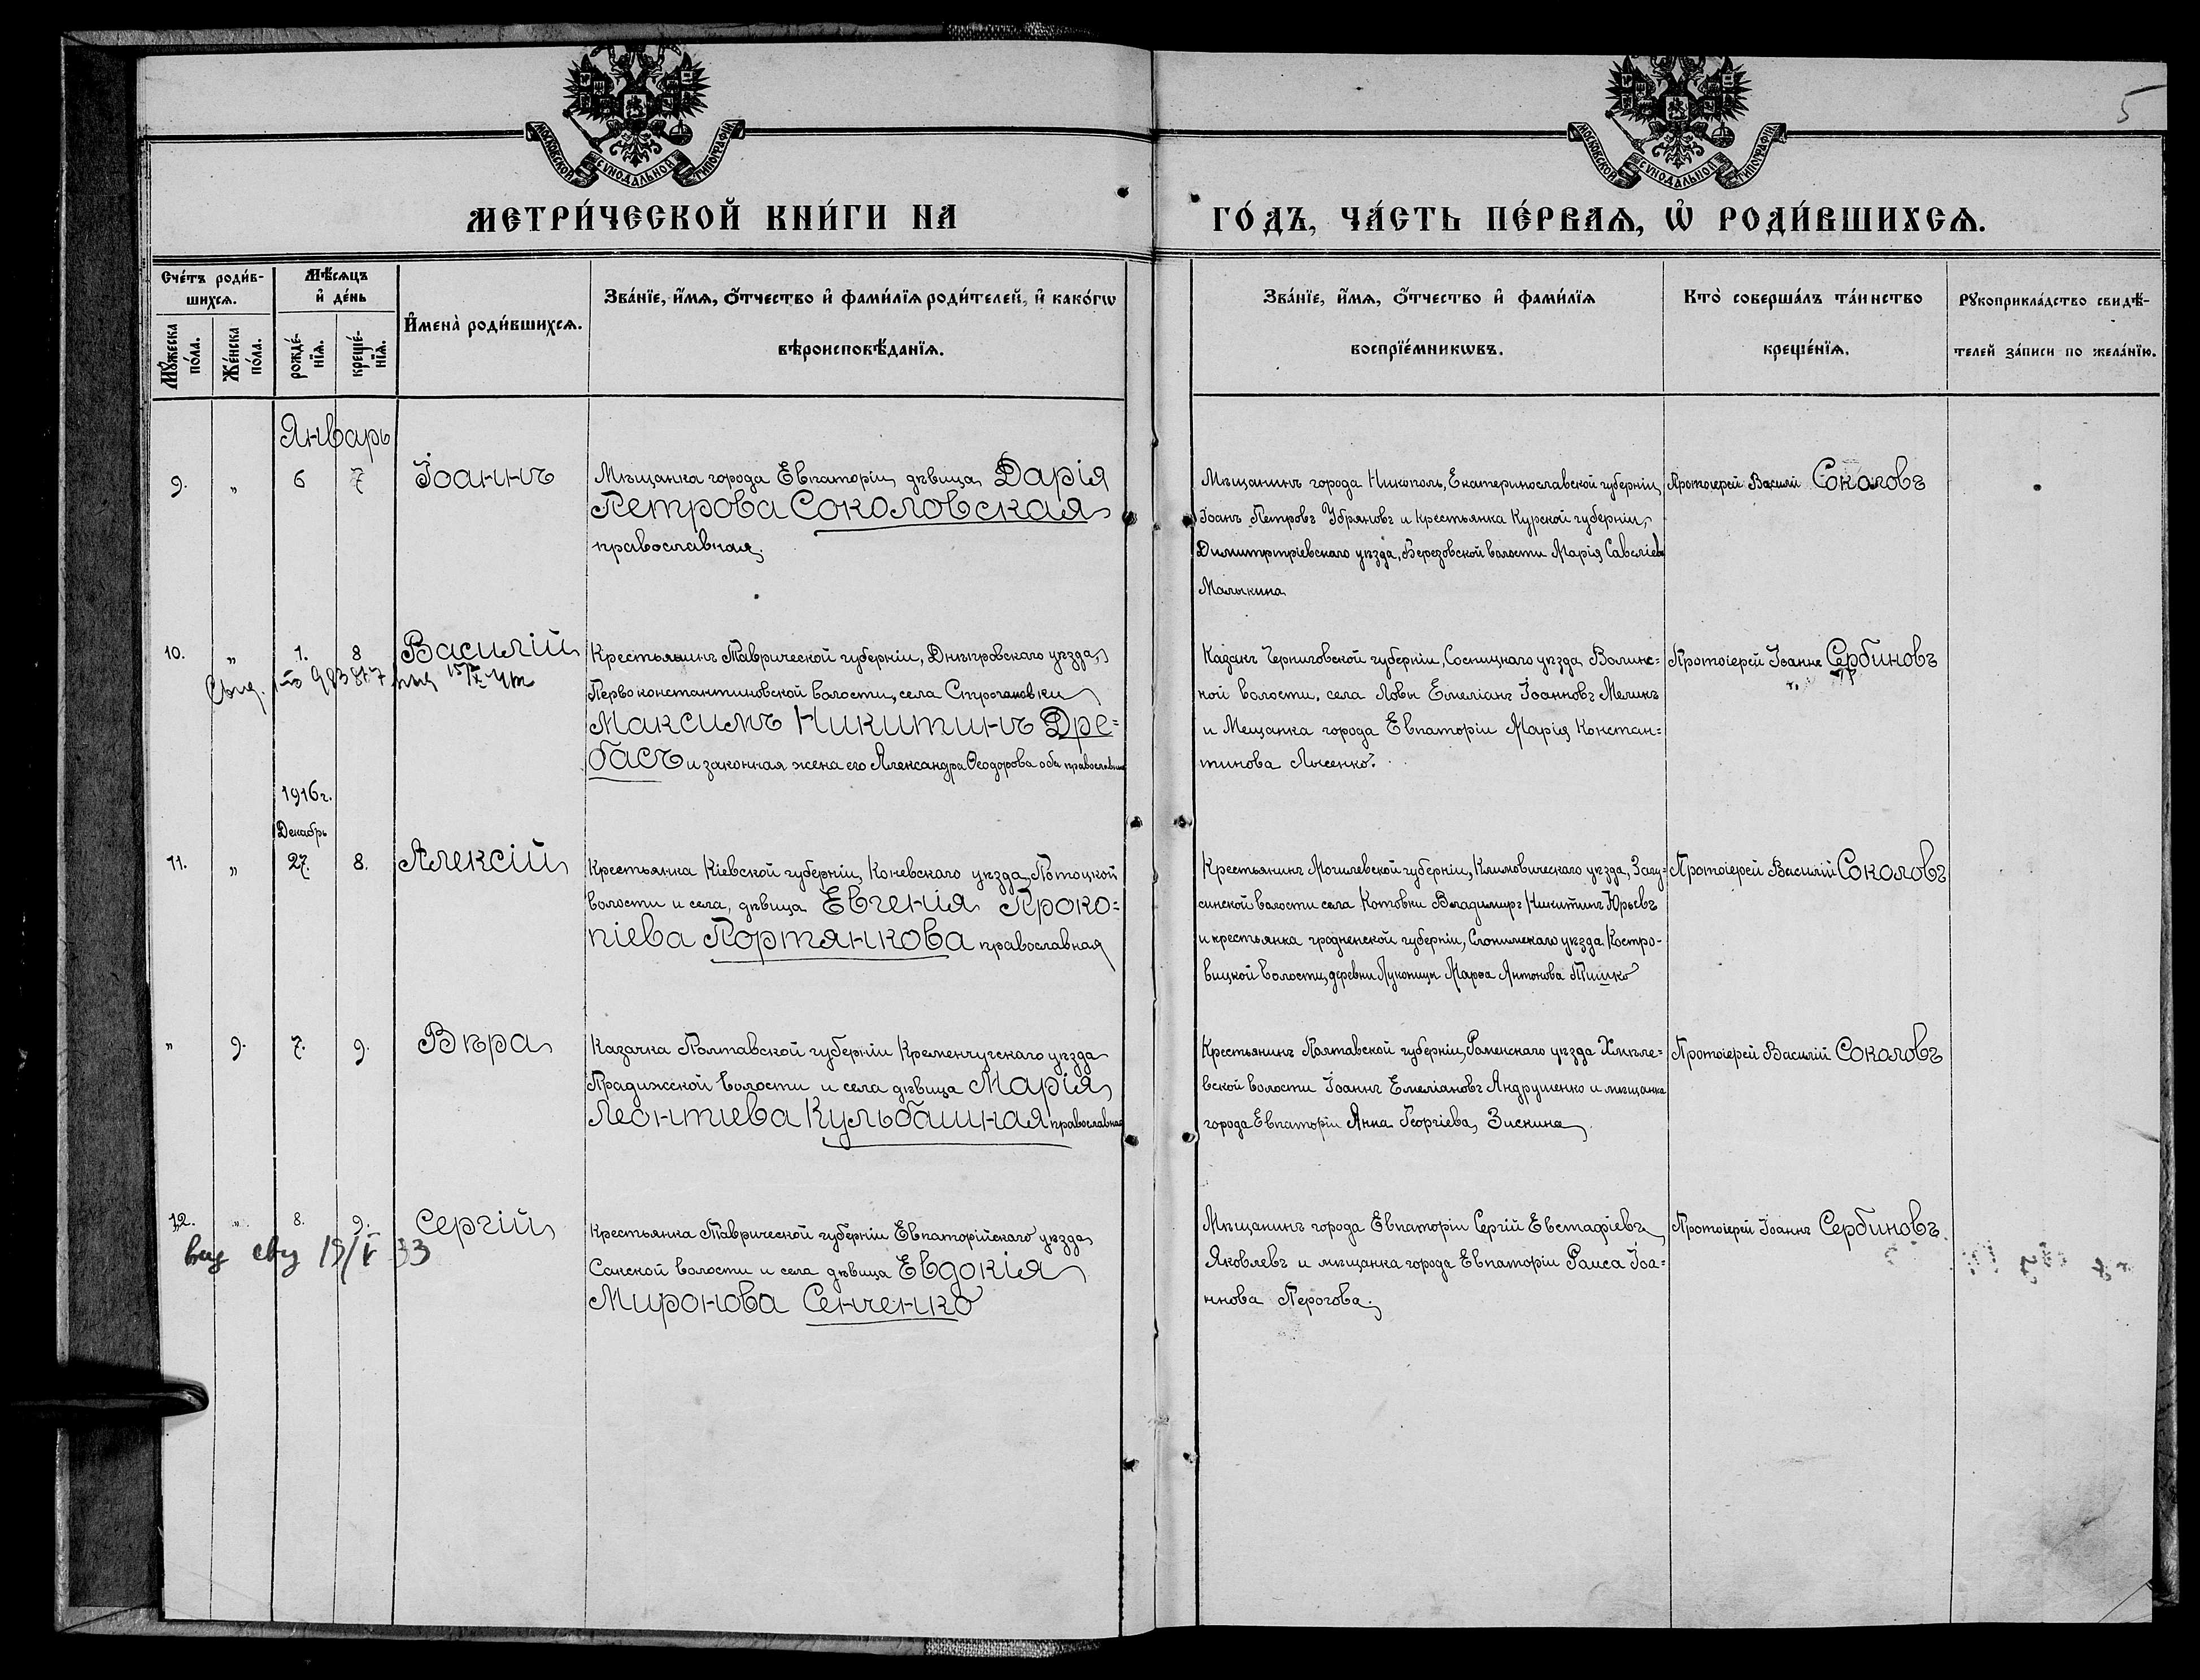 5
МОСКОВСКОЙ СУНОДАЛЬНОЙ ТИПОГРАФІИ
МОСКОВСКОЙ СУНОДАЛЬНОЙ ТИПОГРАФІИ
МЕТРИ́ЧЕСКОЙ КНИ́ГИ НА
ГО́ДЪ, ЧА́СТЬ ПЕ́РВАѦ, Ѡ҆ РОДИ́ВШИХСѦ.
Сче́тъ роди́в-
шихсѧ.
Мѣ́сѧцъ
и҆ де́нь
Мꙋ́жеска
по́ла.
Же́нска
по́ла.
рожде́-
нїѧ.
креще́-
нїѧ.
И҆мена̀ роди́вшихсѧ.
Зва́нїе, и҆́мѧ, ѻ҆́тчество и҆ фами́лїѧ роди́телей, и҆ како́гѡ
вѣроисповѣ́данїѧ.
Зва́нїе, и҆́мѧ, ѻ҆́тчество и҆ фами́лїѧ
воспрїе́мникѡвъ.
Кто̀ соверша́лъ та́инство
креще́нїѧ.
Рꙋкоприкла́дство свидѣ́-
телей за́писи по жела́нїю.
Январь
9. „ 6 7 Іоаннъ
Мѣщанка города Евпаторіи, дѣвица, Дарія
Петрова Соколовская
православная.
Мѣщанинъ города Никополь, Екатеринославской губерніи,
Іоанъ Петровъ Убряновъ и крестьянка Курской губерніи,
Димитріевскаго уѣзда, Березовской волости Марія Савеліева
Малыкина
Протоіерей Василій Соколовъ
10. „ 1. 8 Василій
Крестьянинъ Таврической губерніи, Днѣпровскаго уѣзда,
Первоконстантиновской волости, села Строгановки
Максимъ Никитинъ Дре=
басъ и законная жена его Александра Ѳеодорова оба православные
Казакъ Черниговской губерніи, Сосницкаго уѣзда, Волинс=
кой волости, села Ловы Емеліанъ Іоанновъ Меликъ
и Мещанка города Евпаторіи Марія Констан=
тинова Лысенко.
Протоіерей Іоаннъ Сербиновъ
1916г.
Декабрь
11. „ 27. 8. Алексій
Крестьянка Кіевской губерніи, Коневскаго уѣзда, Потоцкой
волости и села, дѣвица Евгенія Проко=
піева Портянкова православная
Крестьянинъ Могилевской губерніи, Климовическаго уѣзда, Загу=
синской волости села Котовки Владимиръ Никитинъ Юрьевъ
и крестьянка гродненской губерніи, Слонимскаго уѣзда, Костро-
вицкой волости, деревни Луконицы Марѳа Антонова Тишко
Протоіерей Василій Соколовъ
„ 9. 7. 9. Вѣра
Казачка Полтавской губерніи Кременчугскаго уѣзда
Градижской волости и села дѣвица Марія
Леонтиева Кульбашная православная
Крестьянинъ Полтавской губерніи, Роменскаго уѣзда Хмѣле=
вской волости Іоаннъ Емеліановъ Андрушенко и мѣщанка
города Евпаторіи Анна Георгіева, Зиекина
Протоіерей Василій Соколовъ
12. „ 8. 9. Сергій
выд свид 19/V 33
Крестьянка Таврической губерніи Евпаторійскаго уѣзда,
Сакской волости и села дѣвица Евдокія
Миронова Сенченко
Мѣщанинъ города Евпаторіи Сергій Евстафіевъ
Яковлевъ и мѣщанка города Евпаторіи Раиса Іоа=
ннова Перогова.
Протоіерей Іоаннъ Сербиновъ.